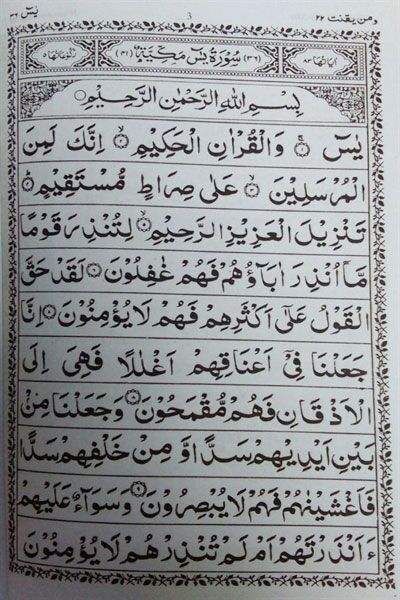 يٰسٓ ٣٦ 3 ومن يقنت ٢٢
اٰيَاتُهَا ٨٣ (٣٦) سُوْرَةُ يٰسٓ مَكِّيَّةٌ (٤١) رُكُوْعَاتُهَا ٥
بِسْمِ اللهِ الرَّحْمٰنِ الرَّحِيْمِ
يٰسٓ ۝١ وَالْقُرْاٰنِ الْحَكِيْمِ ۝٢ اِنَّكَ لَمِنَ
الْمُرْسَلِيْنَ ۝٣ عَلٰى صِرَاطٍ مُّسْتَقِيْمٍ ۝٤
تَنْزِيْلَ الْعَزِيْزِ الرَّحِيْمِ ۝٥ لِتُنْذِرَ قَوْمًا
مَّاۤ اُنْذِرَ اٰبَآؤُهُمْ فَهُمْ غٰفِلُوْنَ ۝٦ لَقَدْ حَقَّ
الْقَوْلُ عَلٰۤى اَكْثَرِهِمْ فَهُمْ لَا يُؤْمِنُوْنَ ۝٧ اِنَّا
جَعَلْنَا فِيْۤ اَعْنَاقِهِمْ اَغْلٰلًا فَهِيَ اِلَى
الْاَذْقَانِ فَهُمْ مُّقْمَحُوْنَ ۝٨ وَجَعَلْنَا مِنْۢ
بَيْنِ اَيْدِيْهِمْ سَدًّا وَّمِنْ خَلْفِهِمْ سَدًّا
فَاَغْشَيْنٰهُمْ فَهُمْ لَا يُبْصِرُوْنَ ۝٩ وَسَوَآءٌ عَلَيْهِمْ
ءَاَنْذَرْتَهُمْ اَمْ لَمْ تُنْذِرْهُمْ لَا يُؤْمِنُوْنَ